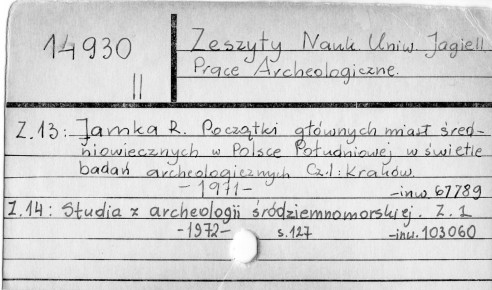 14930
II
Zeszyty Nauk Uniw. Jagiell.
Prace Archeologiczne.
Z.13: Jamka R. Początki głównych miast śred-
niowiecznych w Polsce Południowej w świetle
badań archeologicznych Cz.I: Kraków.
-1971- -inw. 67789
Z.14: Studia z archeologii śródziemnomorskiej. Z.1
-1972- s.127 -inw. 103060